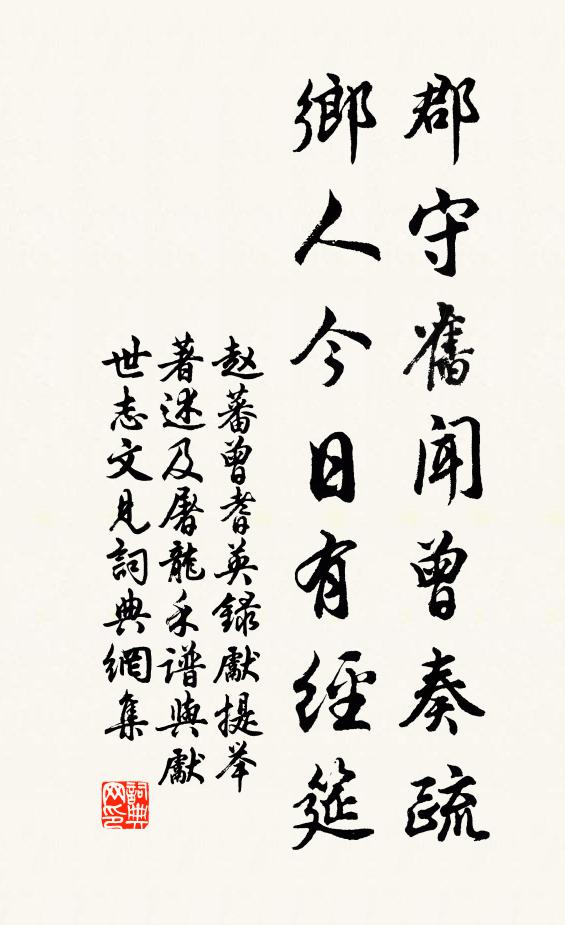 郡守舊聞曾奏疏
鄉人今日有經筵
赵蕃曾耆英録獻提举
著述及屠龍禾谱與獻
世志文見詞典網集
詞典网印